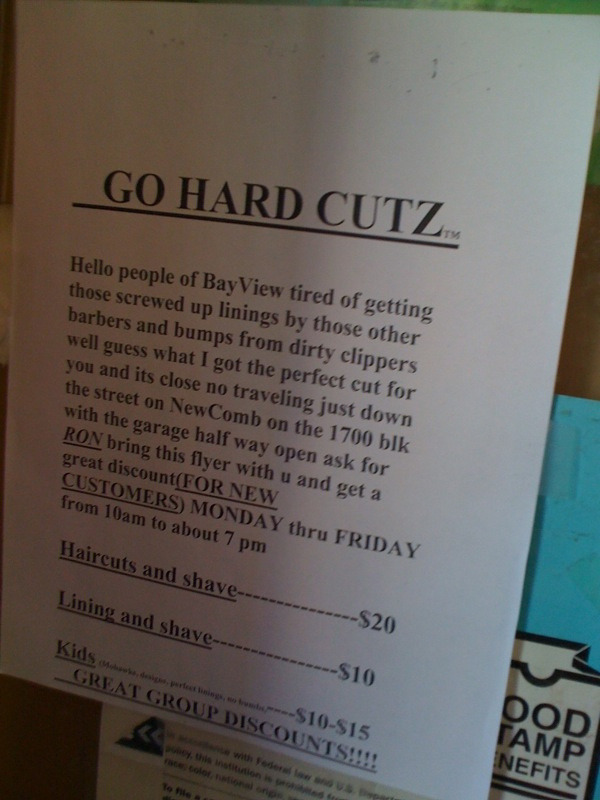 GO HARD CUTZ™
Hello people of BayView tired of getting
those screwed up linings by those other
barbers and bumps from dirty clippers
well guess what I got the perfect cut for
you and its close no traveling just down
the street on NewComb on the 1700 blk
with the garage half way open ask for
RON bring this flyer with u and get a
great discount(FOR NEW
CUSTOMERS) MONDAY thru FRIDAY
from 10am to about 7 pm
Haircuts and shave--------------$20
Lining and shave--------------$10
Kids (Mohawks, designs, perfect linings, no bumbs)----$10-$15
GREAT GROUP DISCOUNTS!!!!
OOD
TAMP
ENEFITS
In accordance with Federal law and U.S. Depart
policy, this institution is prohibited from
race, color, national origin
To file a